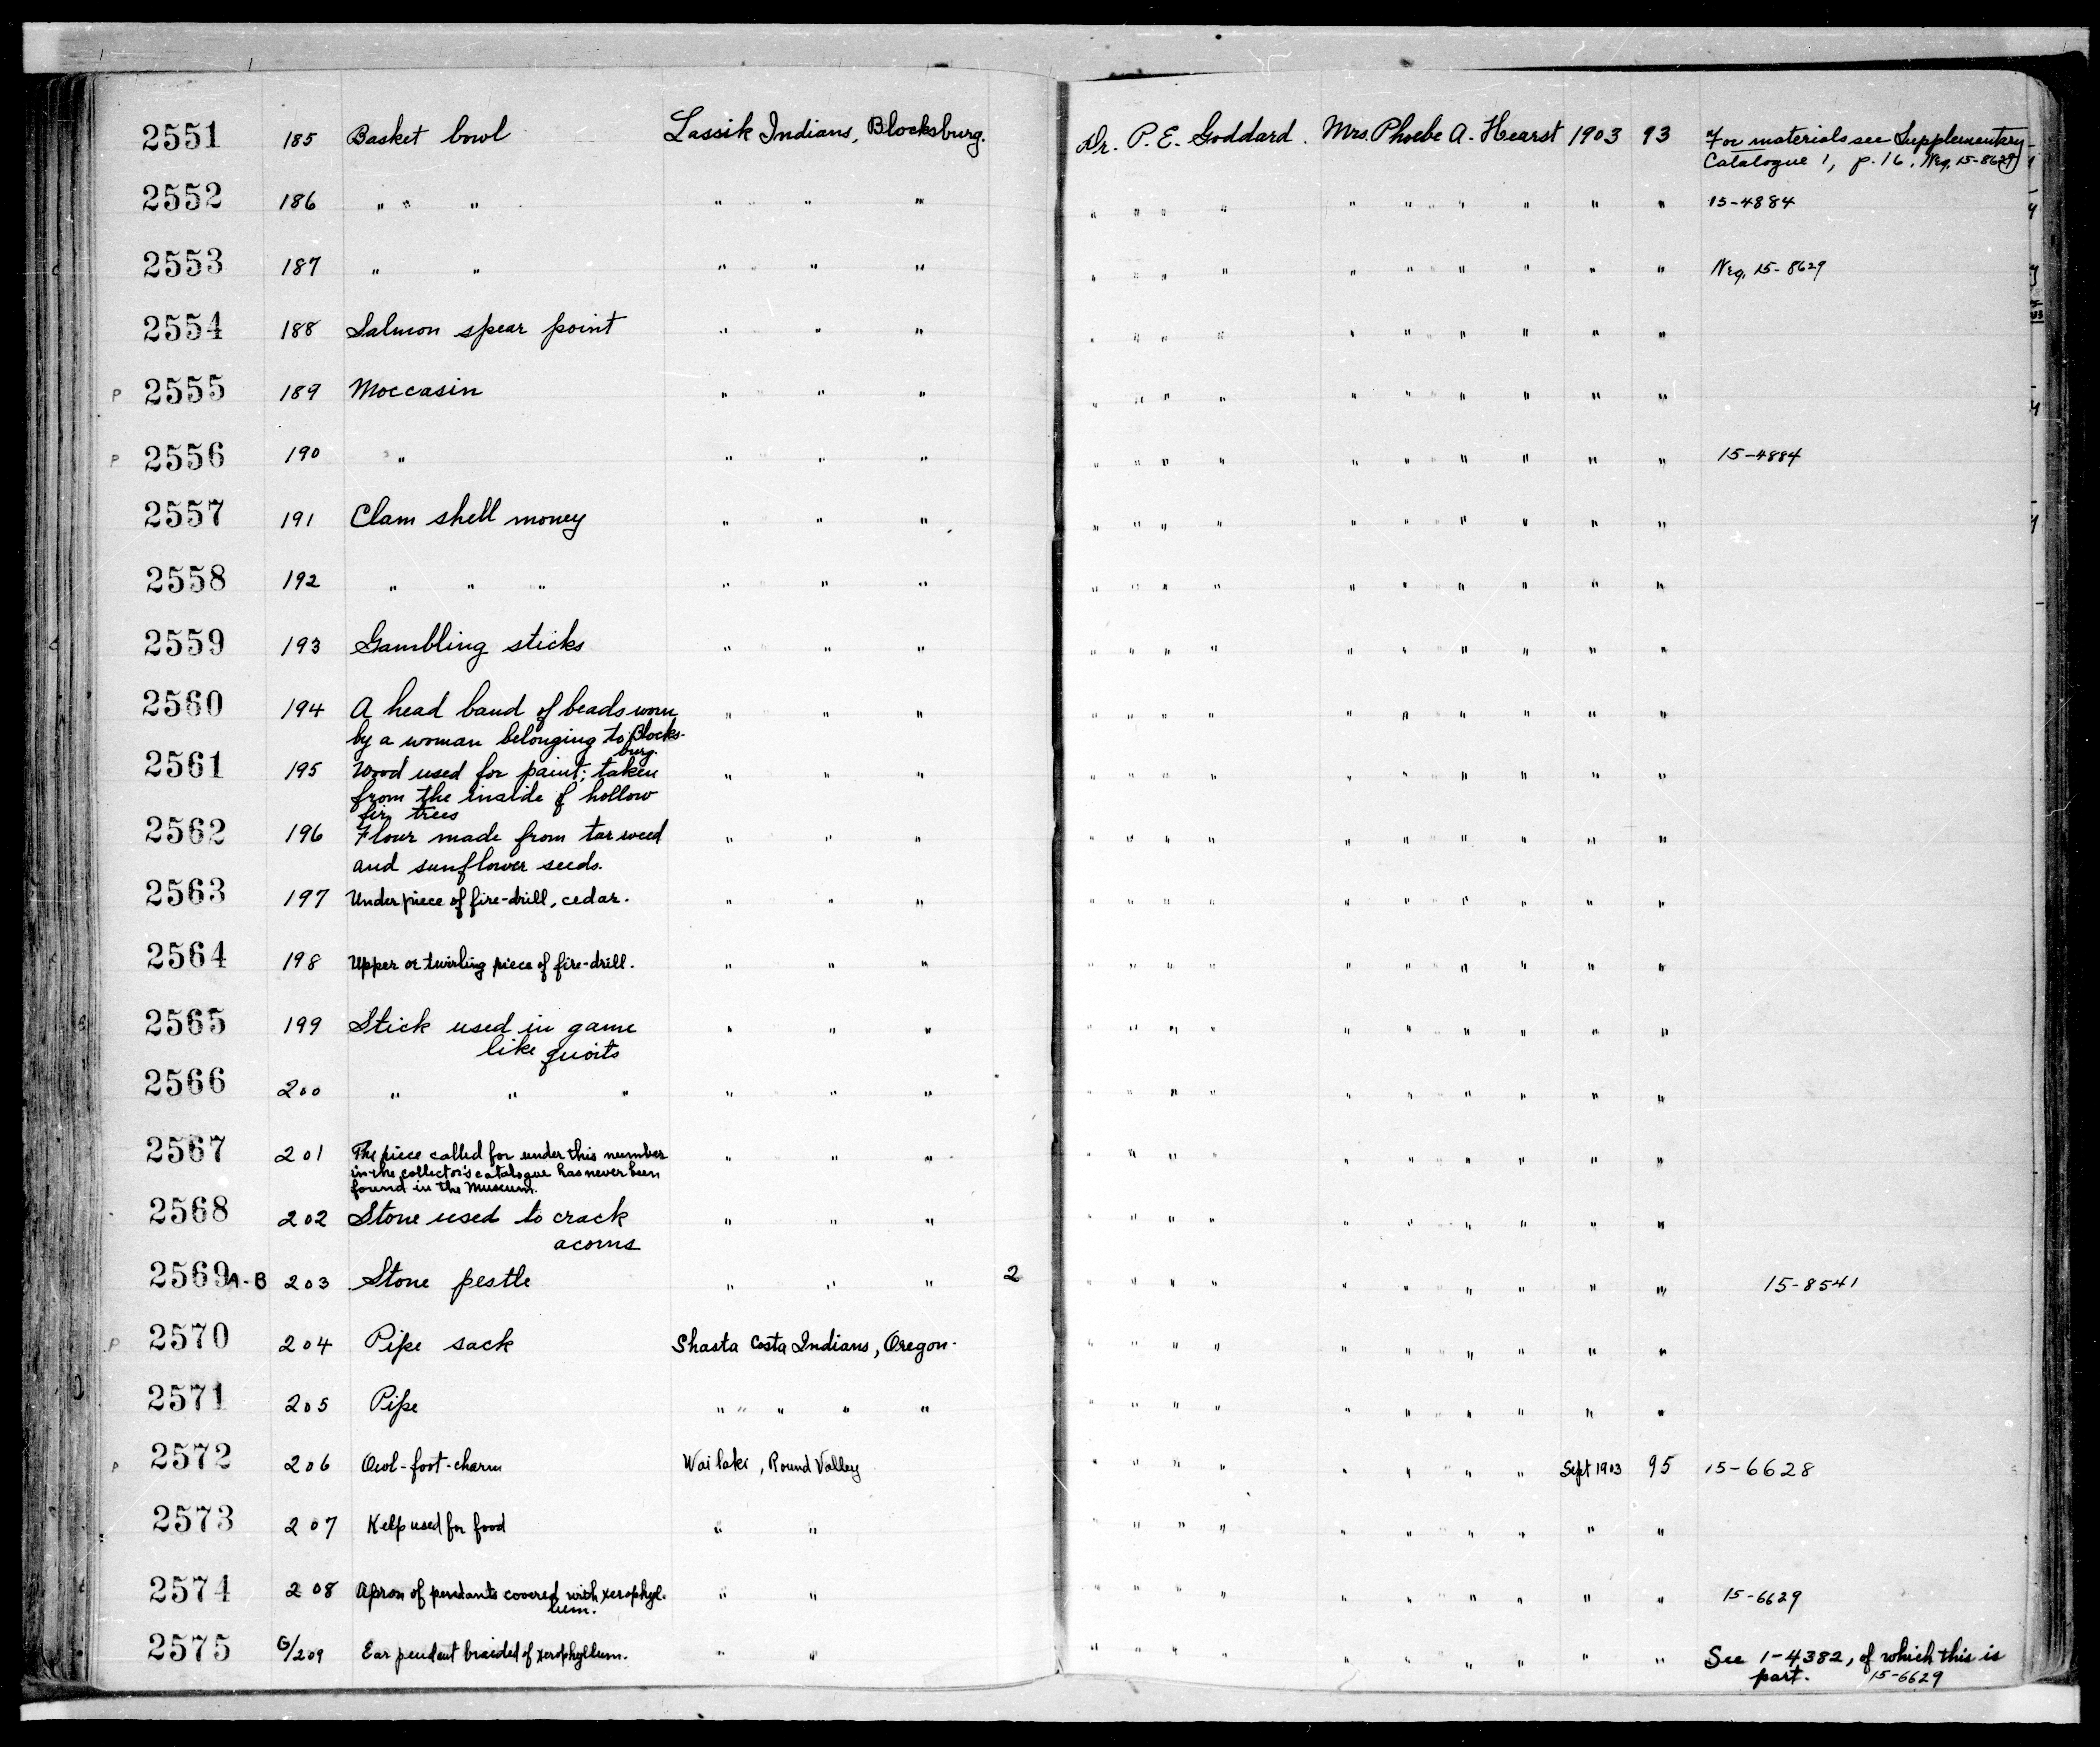 2551 185 Basket bowl Lassik Indians, Blocksburg. Dr. P. E. Goddard. Mrs. Phoebe A. Hearst 1903 93 For materials see Supplementary
Catalogue 1, p. 16. Neg. 15-8629
2552 186 " " " " " " " " " " " " " " " " 15-4884
2553 187 " " " " " " " " " " " " " " " Neg. 15-8629
2554 188 Salmon spear point " " " " " " " " " " " " "
P 2555 189 Moccasin " " " " " " " " " " " " "
P 2556 190 " " " " " " " " " " " " " " 15-4884
2557 191 Clam shell money " " " " " " " " " " " " "
2558 192 " " " " " " " " " " " " " " " "
2559 193 Gambling sticks " " " " " " " " " " " " "
2560 194 A head band of beads worn " " " " " " " " " " " " "
by a woman belonging to Blocks-
burg.
2561 195 Wood used for paint; taken " " " " " " " " " " " " "
from the inside of hollow
fir trees
2562 196 Flour made from tar weed " " " " " " " " " " " " "
and sunflower seeds.
2563 197 Under piece of fire-drill, cedar. " " " " " " " " " " " " "
2564 198 Upper or twirling piece of fire-drill. " " " " " " " " " " " " "
2565 199 Stick used in game " " " " " " " " " " " " "
like quoits
2566 200 " " " " " " " " " " " " " " " "
2567 201 The piece called for under this number " " " " " " " " " " " " "
in the collector's catalogue has never been
found in the Museum.
2568 202 Stone used to crack " " " " " " " " " " " " "
acorns
2569 A-B 203 Stone pestle " " " 2 " " " " " " " " " " 15-8541
P 2570 204 Pipe sack Shasta Costa Indians, Oregon. " " " " " " " " " "
2571 205 Pipe " " " " " " " " " " " " " " "
P 2572 206 Owl-foot-charm Wailaki, Round Valley " " " " " " " " Sept 1903 95 15-6628
2573 207 Kelp used for food " " " " " " " " " " " "
2574 208 Apron of pendants covered with xerophyl- " " " " " " " " " " " " 15-6629
lum.
2575 G/209 Ear pendant braided of xerophyllum. " " " " " " " " " " " " See 1-4382, of which this is
part. 15-6629